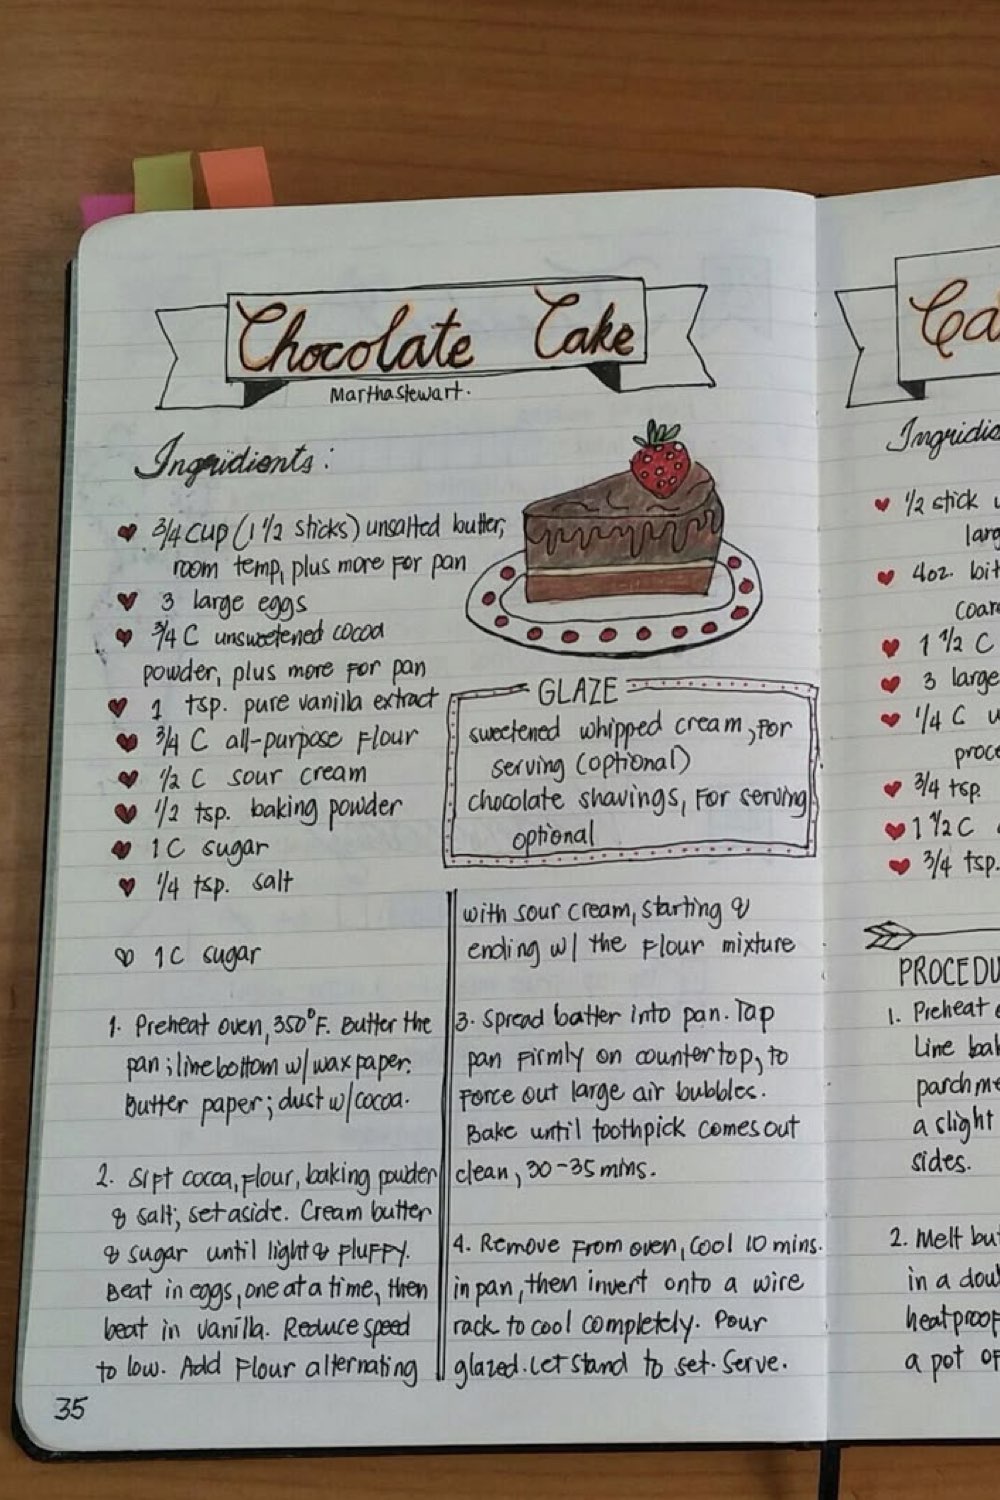 Chocolate Cake
Martha Stewart.
Ingridients:
3/4 cup (1 1/2 sticks) unsalted butter,
room temp, plus more for pan
3 large eggs
3/4 C unsweetened cocoa
powder, plus more for pan
1 tsp. pure vanilla extract
3/4 C all-purpose flour
1/2 C sour cream
1/2 tsp. baking powder
1 C sugar
1/4 tsp. salt
1 C sugar
GLAZE
sweetened whipped cream, for
serving (optional)
chocolate shavings, for serving
optional
1. Preheat oven, 350°F. Butter the
pan; line bottom w/ wax paper.
Butter paper; dust w/ cocoa.
2. Sift cocoa, flour, baking powder
& salt; set aside. Cream butter
& sugar until light & fluffy.
Beat in eggs, one at a time, then
beat in vanilla. Reduce speed
to low. Add flour alternating
with sour cream, starting &
ending w/ the flour mixture
3. Spread batter into pan. Tap
pan firmly on countertop, to
force out large air bubbles.
Bake until toothpick comes out
clean, 30-35 mins.
4. Remove from oven, cool 10 mins.
in pan, then invert onto a wire
rack to cool completely. Pour
glazed. Let stand to set. Serve.
35
Ca
Ingridie
1/2 stick u
larg
4oz. bit
coars
1 1/2 C
3 large
1/4 C u
proce
3/4 tsp.
1 1/2 C
3/4 tsp.
PROCEDU
1. Preheat
Line bak
parchme
a slight
sides.
2. Melt but
in a dou
heatproof
a pot of